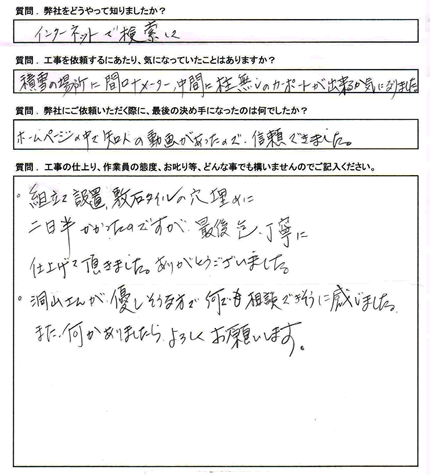 質問．弊社をどうやって知りましたか？
インターネットで検索して
質問．工事を依頼するにあたり、気になっていたことはありますか？
積雪の場所に間口ナメーター，中間に柱無しのカーポートが出来るか気になりました
質問．弊社にご依頼いただく際に、最後の決め手になったのは何でしたか？
ホームページの中で知人の動画があったので、信頼できました。
質問．工事の仕上り、作業員の態度、お叱り等、どんな事でも構いませんのでご記入ください。
。組立て設置、敷石タイルの穴埋めに
二日半かかったのですが、最後迄、丁寧に
仕上げて頂きました。ありがとうございました。
。洞山さんが優しそうな方で何でも相談できそうに感じました。
また、何かありましたら、よろしくお願いします。